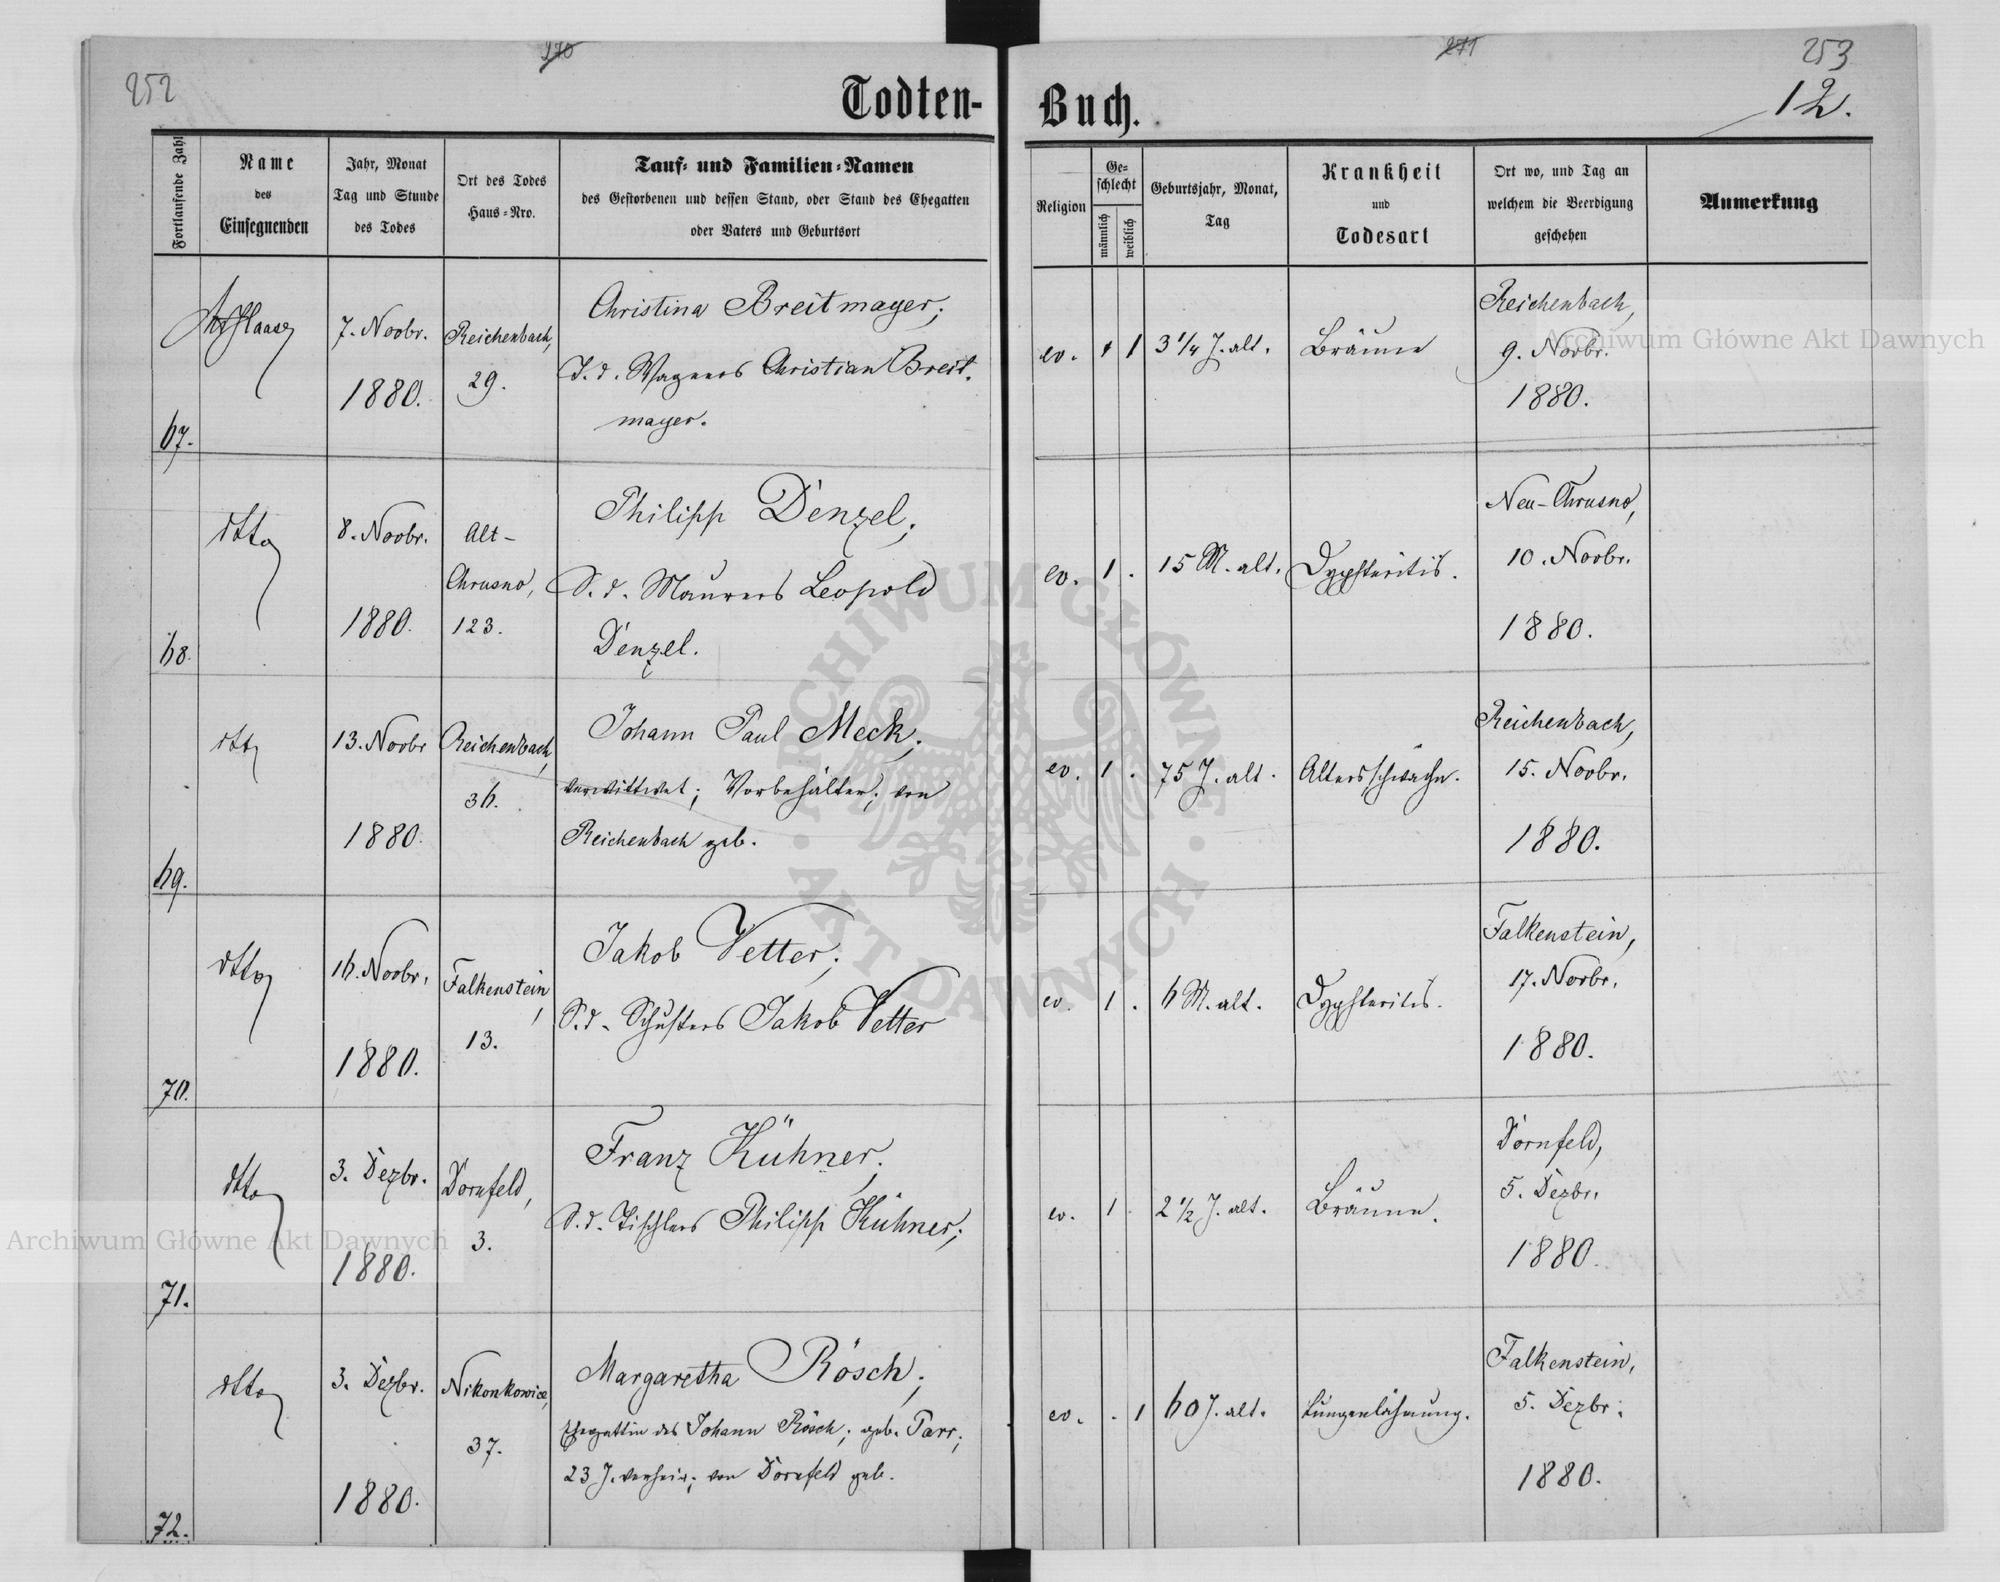 252
270
271
253
12.
Todten-
Buch.
Fortlaufende Zahl
Name
des
Einsegnenden
Jahr, Monat
Tag und Stunde
des Todes
Ort des Todes
Haus-Nro.
Tauf- und Familien-Namen
des Gestorbenen und dessen Stand, oder Stand des Ehegatten
oder Vaters und Geburtsort
Religion
Ge-
schlecht
männlich
weiblich
Geburtsjahr, Monat,
Tag
Krankheit
und
Todesart
Ort wo, und Tag an
welchem die Beerdigung
geschehen
Anmerkung
67.
Haase
7. Novbr.
1880.
Reichenbach,
29.
Christina Breitmayer;
T. d. Wagners Christian Breit-
mayer.
ev.
1
3 1/4 J. alt.
Bräune
Reichenbach,
9. Novbr.
1880.
68.
dtto
8. Novbr.
1880.
Alt-
Chrusno,
123.
Philipp Denzel;
S. d. Maurers Leopold
Denzel.
ev.
1 .
15 M. alt.
Dyphteritis.
Neu-Chrusno,
10. Novbr.
1880.
69.
dtto
13. Novbr
1880.
Reichenbach,
36.
Johann Paul Meck;
verwittwet; Vorbehälter; von
Reichenbach geb.
ev.
1 .
75 J. alt.
Altersschwäche.
Reichenbach,
15. Novbr.
1880.
70.
dtto
16. Novbr.
1880.
Falkenstein,
13.
Jakob Vetter;
S. d. Schusters Jakob Vetter
ev.
1 .
6 M. alt.
Dyphteritis.
Falkenstein,
17. Novbr.
1880.
71.
dtto
3. Dezbr.
1880.
Dornfeld,
3.
Franz Kühner;
S. d. Tischlers Philipp Kühner;
ev.
1 .
2 1/2 J. alt.
Bräune.
Dornfeld,
5. Dezbr.
1880.
72.
dtto
3. Dezbr.
1880.
Nikonkowice,
37.
Margaretha Rösch;
Ehegattin des Johann Rösch; geb. Parr;
23 J. verheir.; von Dornfeld geb.
ev.
. 1
60 J. alt.
Lungenlähmung.
Falkenstein,
5. Dezbr.
1880.
Archiwum Główne Akt Dawnych
Archiwum Główne Akt Dawnych
ARCHIWUM GŁÓWNE · AKT DAWNYCH ·